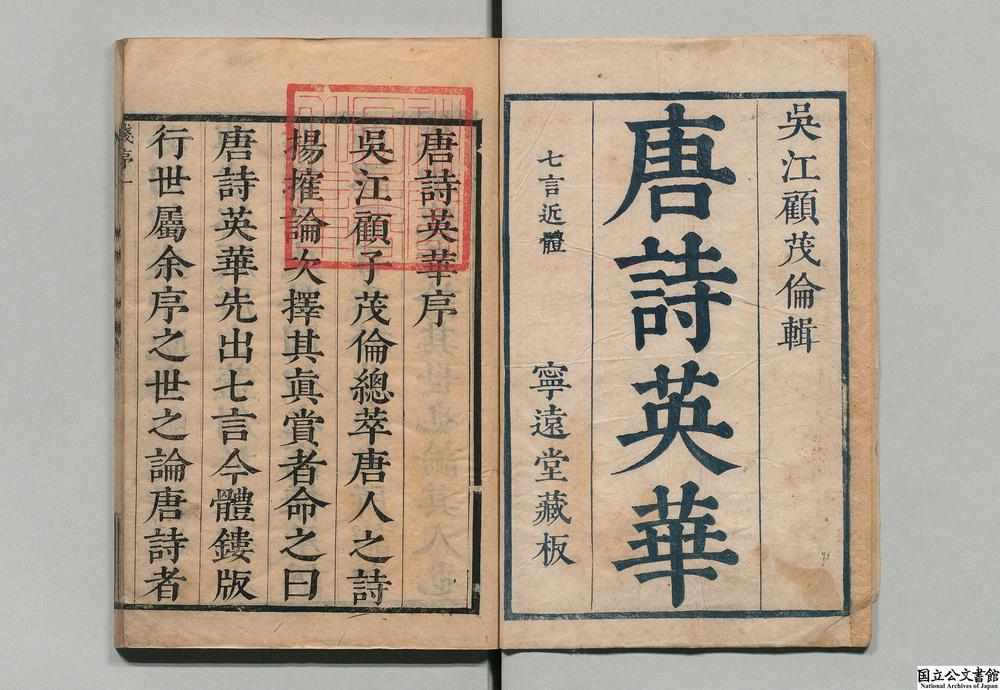 吳江顧茂倫輯
唐詩英華
七言近體
寧遠堂藏板
唐詩英華序
吳江顧子茂倫總萃唐人之詩
揚搉論次擇其眞賞者命之曰
唐詩英華先出七言今體鏤版
行世屬余序之世之論唐詩者
錢序一
国立公文書館
National Archives of Japan